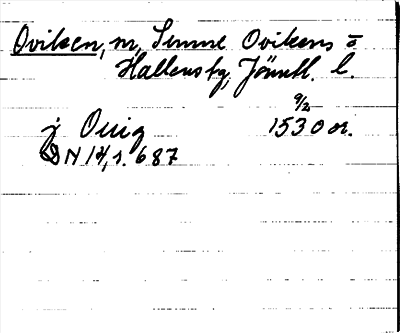 Oviken, m, Sunne Ovikens o
Hallens fg, Jämtl. l.
9/2
j Ouig 1530 or.
DN 14, s. 687